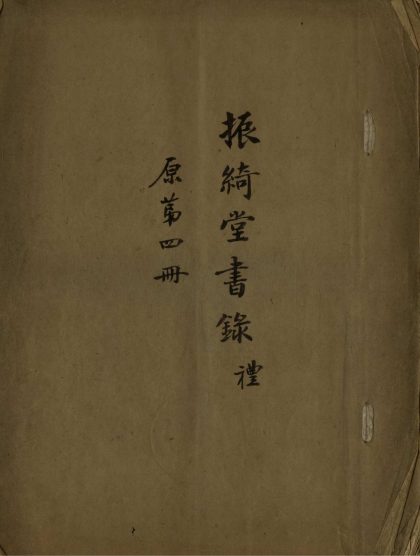 振綺堂書錄 禮
原苐四冊